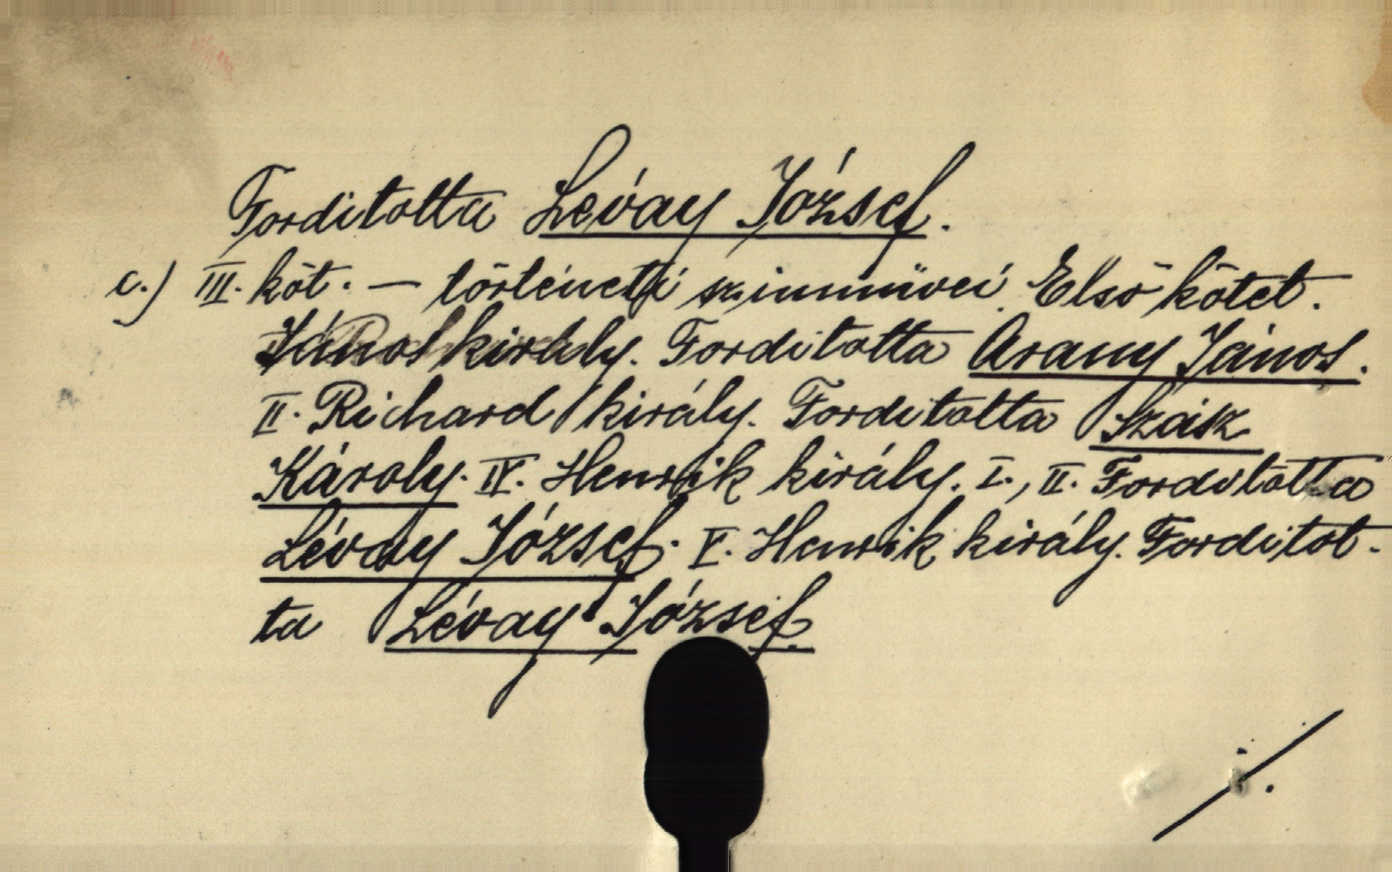 Forditotta Lévay József.
c.) III. köt. — történeti szinművei. Első kötet.
János király. Forditotta Arany János.
II. Richard király. Forditotta Szász
Károly. IV. Henrik király. I., II. Forditotta
Lévay József. V. Henrik király. Fordítot-
ta Lévay József.
./.